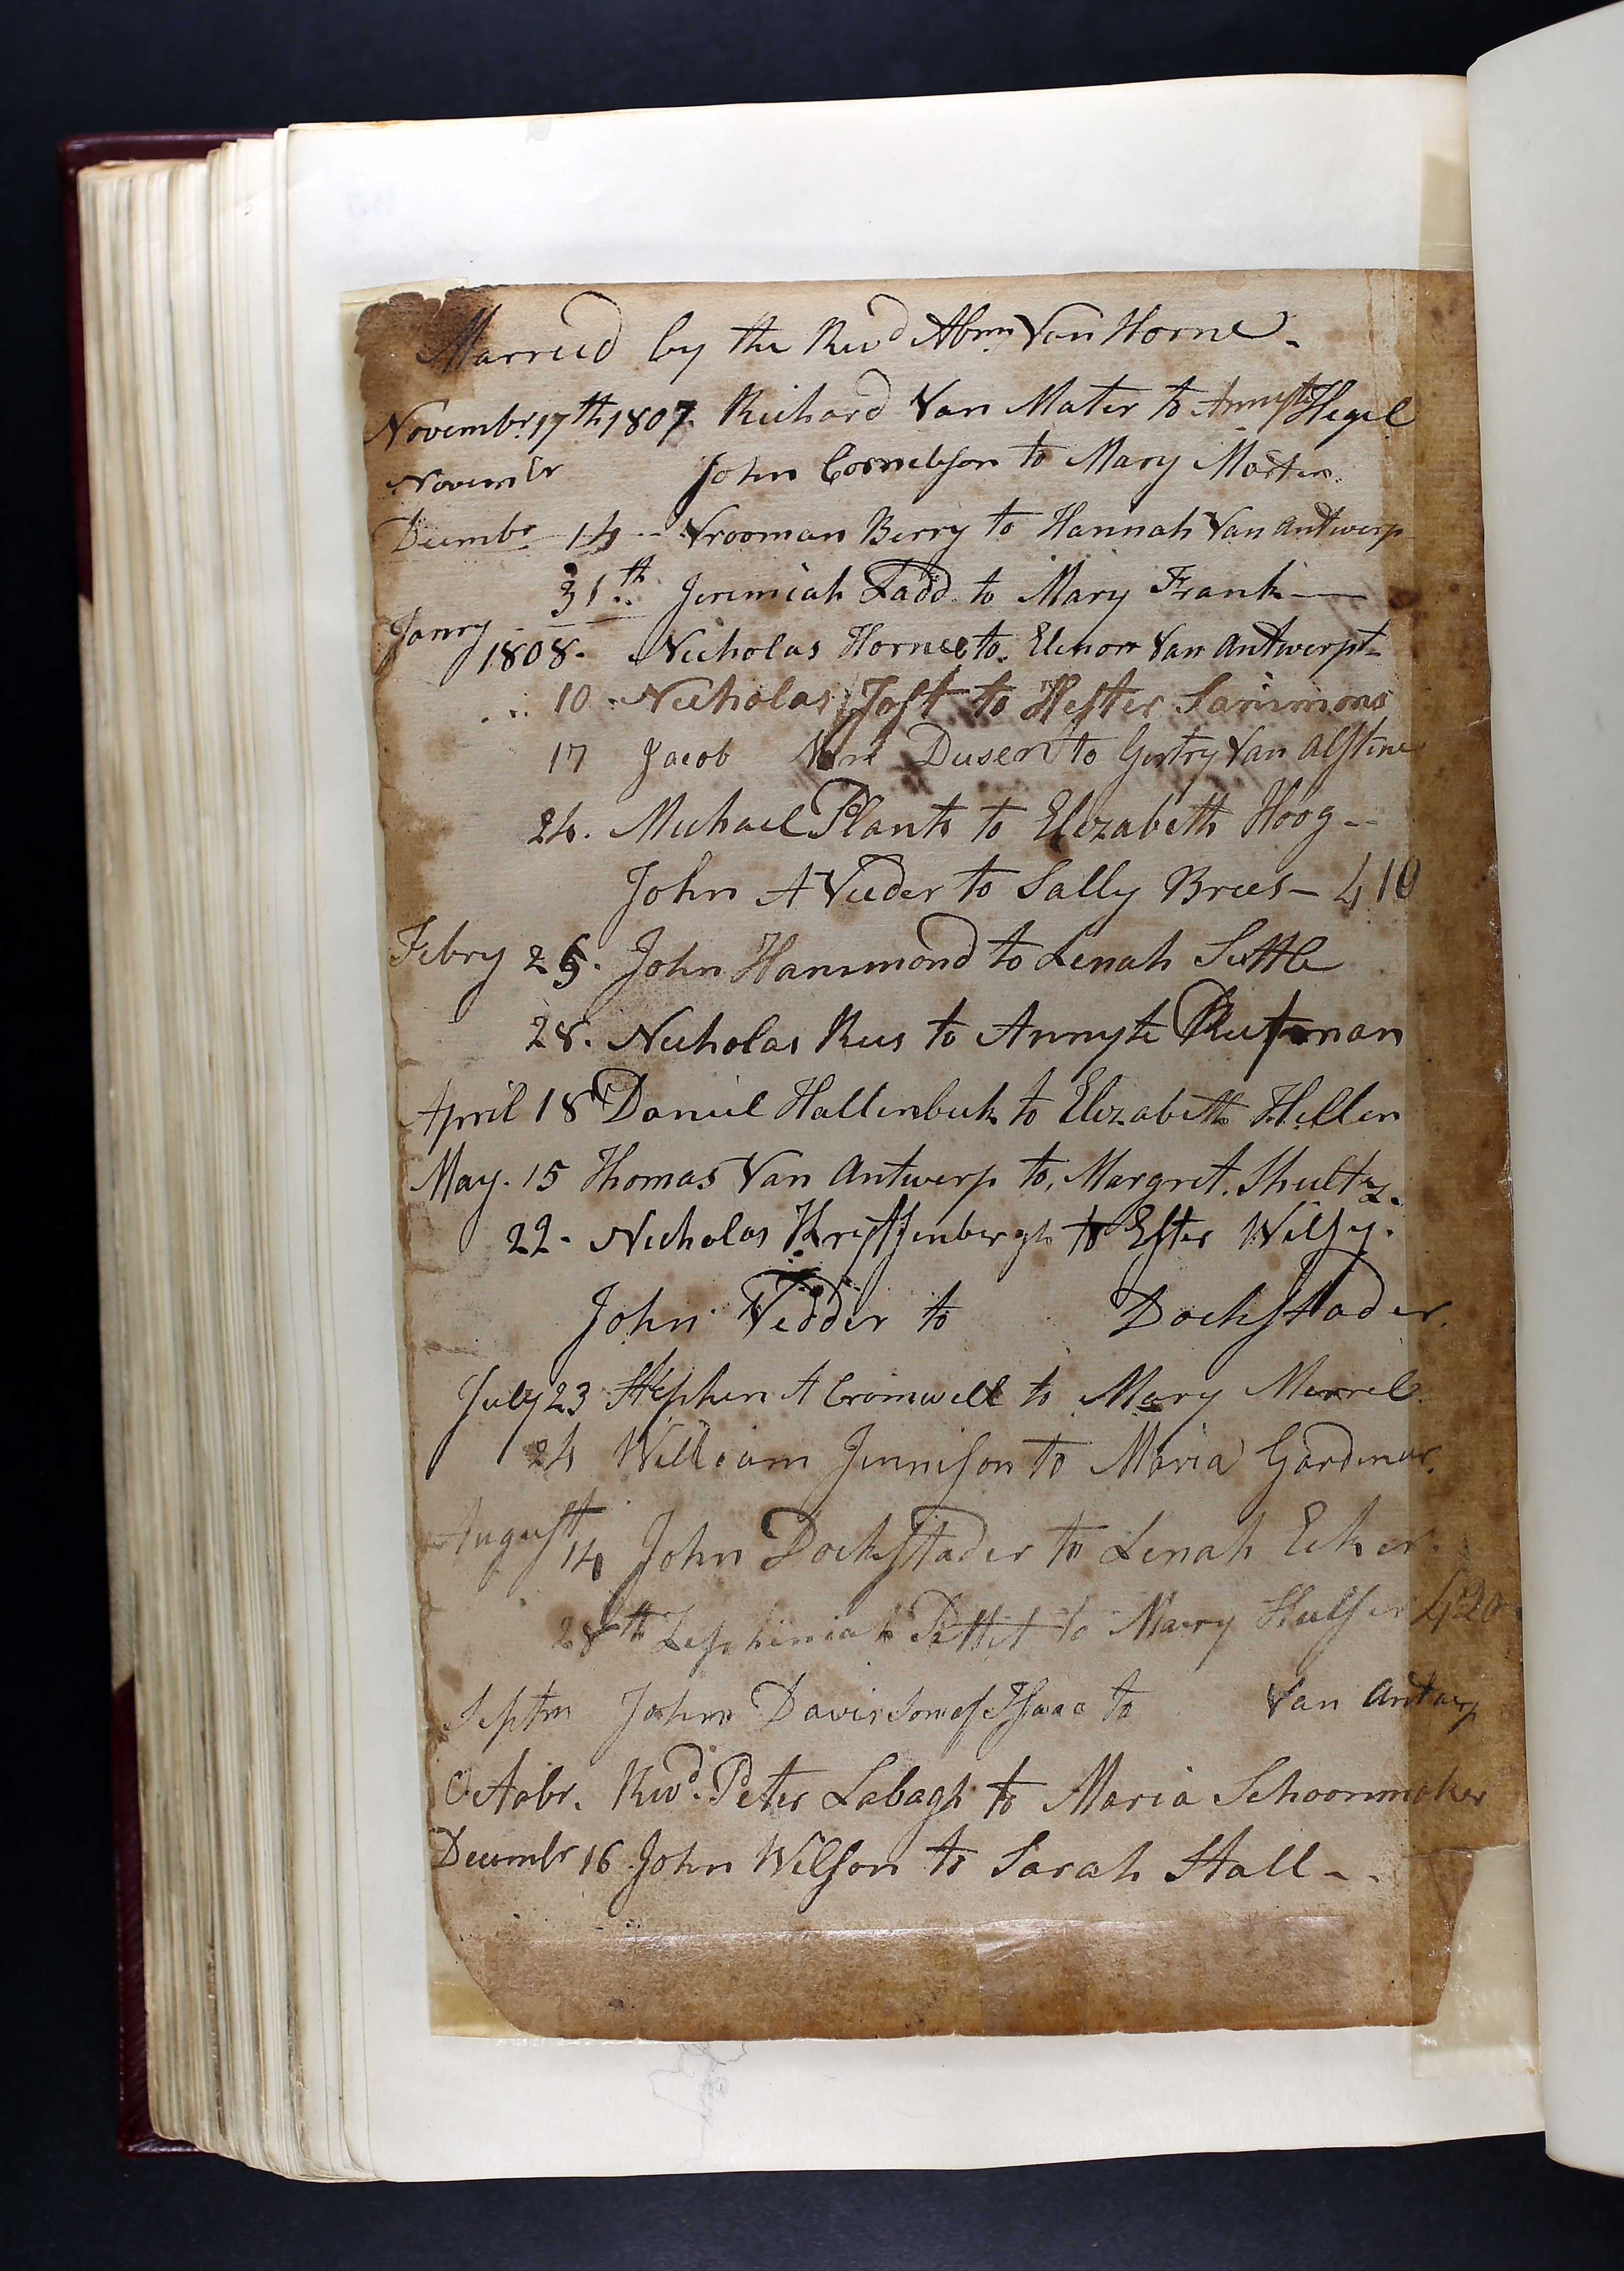 Married by the Revd Abm Van Horne.
Novembr. 17th 1807. Richard Van Mater to Annyte Hegel
Novembr John Cornelyson to Mary Marten.
Decembr 14 -- Vrooman Berry to Hannah Van Antwerp
31th Jeremiah Ladd to Mary Frank —
Janry
1808. Nicholas Horne to Elenor Van Antwerp
10 Nicholas Jost to Hester Sammons
17 Jacob Van Dusen to Gertry Van Alstine
24. Michael Plants to Elizabeth Hoog --
John A Veeder to Sally Brees — 410
Febry 25. John Hammond to Lenah Suttle
28. Nicholas Rus to Annyte
April 18 Daniel Hallenbeck to Elizabeth Hellen
May. 15 Thomas Van Antwerp to Margret. Shultz.
22. Nicholas to Ester Wilsy.
John Vedder to Dockstader.
July 23 Stephen A Cromwell to Mary Merrel.
24 William Jennison to Maria Gardener.
August
14 John Dockstader to Lenah Ecker.
28th Zephiniah Pettit to Mary Hulser 420
Septm John Davis son of Isaac to Van Antwerp
Octobr. Revd. Peter Labagh to Maria Schoonmaker
Decembr 16 John Wilson to Sarah Stall --